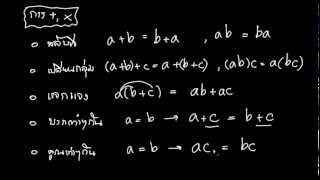 การ +, ×
สลับที่ a+b = b+a , ab = ba
เปลี่ยนกลุ่ม (a+b)+c = a+(b+c) , (ab)c = a(bc)
แจกแจง a(b+c) = ab+ac
บวกเท่าๆกัน a=b → a+c = b+c
คูณเท่าๆกัน a=b → ac = bc